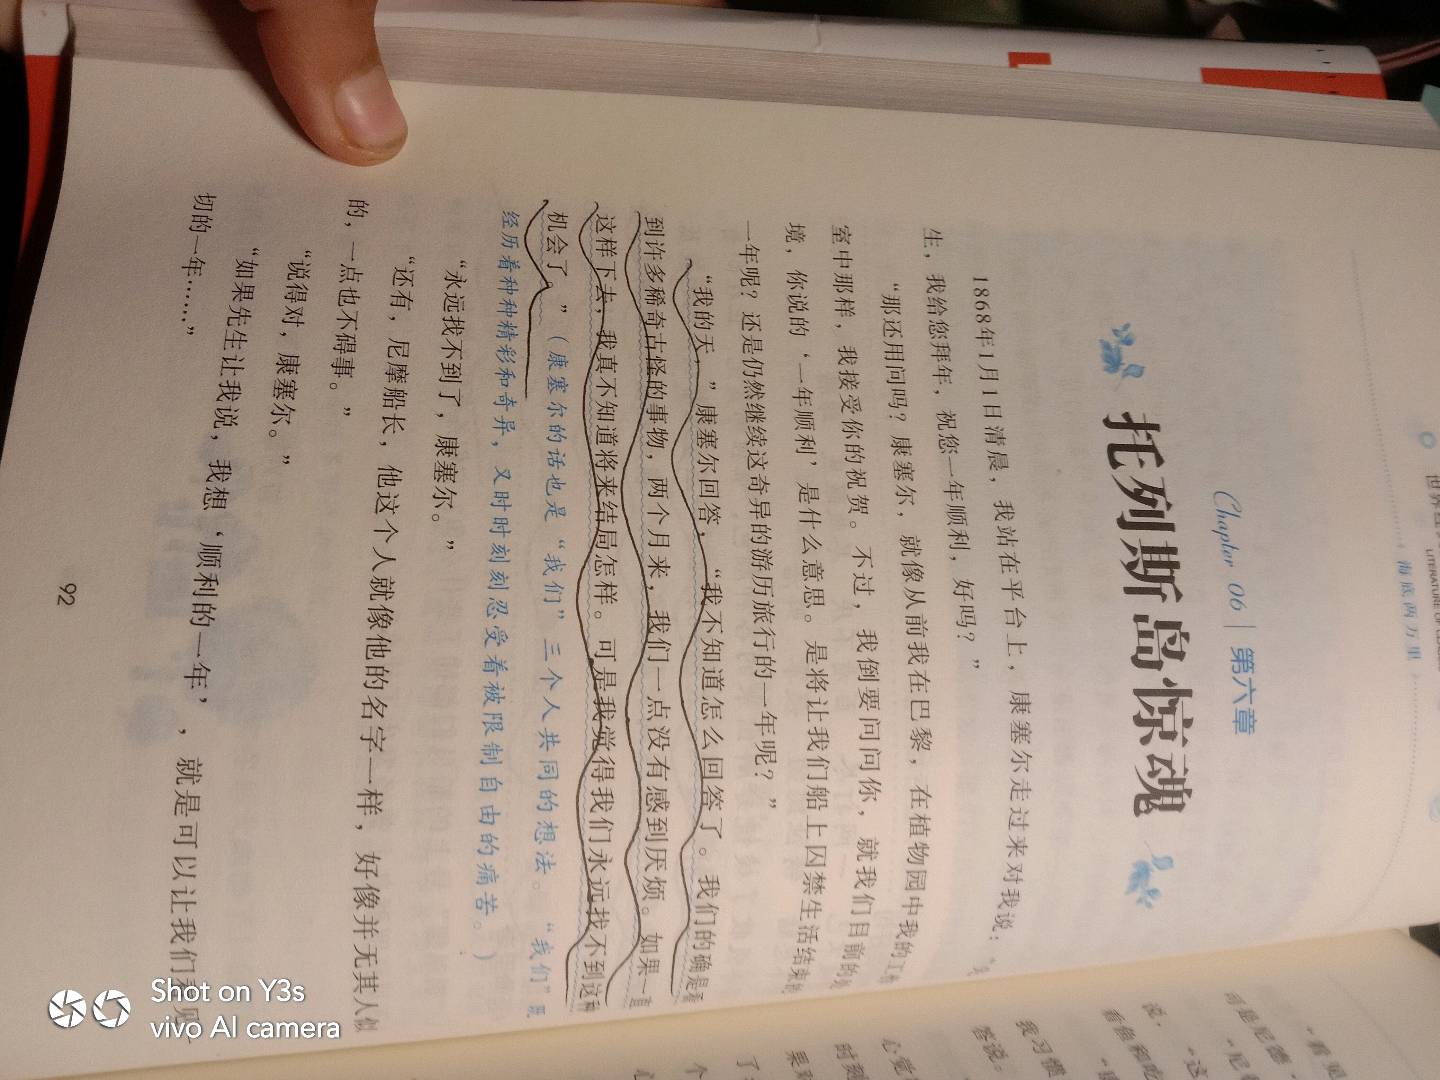 海底两万里
Chapter 06 第六章
托列斯岛惊魂
1868年1月1日清晨，我站在平台上，康塞尔走过来对我说：“先
生，我给您拜年，祝您一年顺利，好吗？”
“那还用问吗？康塞尔，就像从前我在巴黎，在植物园中我的工作
室中那样，我接受你的祝贺。不过，我倒要问问你，就我们目前的
境，你说的‘一年顺利’是什么意思。是将让我们船上囚禁生活结束的
一年呢？还是仍然继续这奇异的游历旅行的一年呢？”
“我的天，”康塞尔回答，“我不知道怎么回答了。我们的确是看
到许多稀奇古怪的事物，两个月来，我们一点没有感到厌烦。如果一直
这样下去，我真不知道将来结局怎样。可是我觉得我们永远找不到这种
机会了。”（康塞尔的话也是“我们”三个人共同的想法。“我们”既
经历着种种精彩和奇异，又时时刻刻忍受着被限制自由的痛苦。）
“永远找不到了，康塞尔。”
“还有，尼摩船长，他这个人就像他的名字一样，好像并无其人似
的，一点也不碍事。”
“说得对，康塞尔。”
“如果先生让我说，我想‘顺利的一年’，就是可以让我们看见一
切的一年……”
92
Shot on Y3s
vivo AI camera